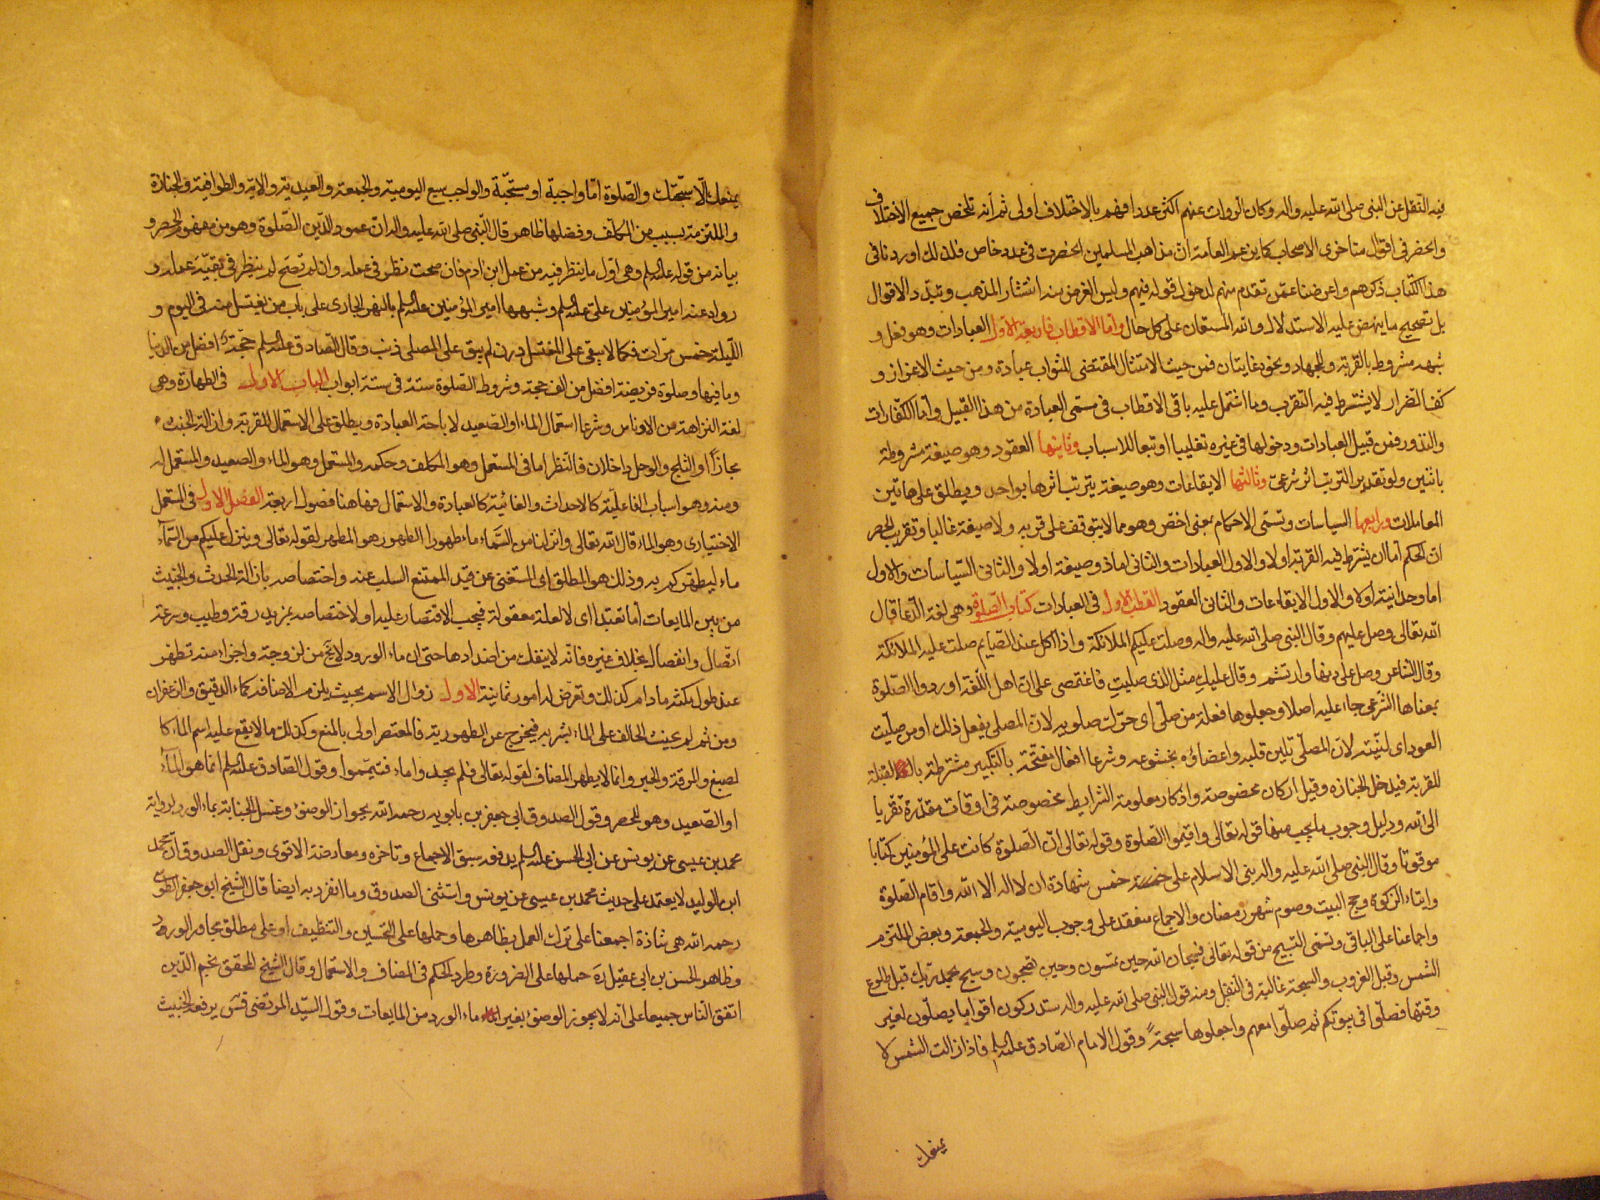 فيه النقل عن النبي صلى الله عليه واله وكان الروات عنهم اكثر عددا فهم بالاختلاف اولى ثم أنه تلخص جميع الاختلاف
وانحصر في اقوال متاخرى الاصحاب كما يزعم العامة ان مذاهب المسلمين انحصرت في عدد خاص فلذلك اوردنا في
هذا الكتاب ذكرهم واعرضنا عمن تقدم منهم لدخول قوله فيهم وليس الغرض منه انتشار المذهب وتبدد الاقوال
بل تصحيح ما ينهض عليه الاستدلال والله المستعان على كل حال واما الاقطاب فاربعة الاول العبادات وهو فعل و
شبهه مشروط بالقربة وللجهاد ونحوه غايتان فمن حيث الامتثال المقتضى للثواب عبادة ومن حيث الاعزاز و
كف الضرار لا يشترط فيه التقرب وما اشتمل عليه باقى الاقطاب في مسمى العبادة من هذا القبيل وأما الكفارات
والنذور فمن قبيل العبادات ودخولها في غيره تغليبا او تبعا للاسباب وثانيها العقود وهو صيغة مشروطة
باثنين ولو تقديرا لترتب اثر شرعى وثالثها الايقاعات وهو صيغة يترتب اثرها بواحد ويطلق على هاتين
المعاملات ورابعها السياسات وتسمى الاحكام بمعنى اخص وهو ما لا يتوقف على قربة ولا صيغة غالبا وتقريب الحصر
ان الحكم اما ان يشترط فيه القربة او لا والاول العبادات والثاني اما ذو صيغة او لا والثاني السياسات والاول
اما وحدانية اولا والاول الايقاعات والثاني العقود القطب الاول في العبادات كتاب الصلوة وهي لغة الدعا قال
الله تعالى وصل عليهم وقال النبي صلى الله عليه واله وصلت عليكم الملائكة واذا اكل عند الصايم صلت عليه الملائكة
وقال الشاعر وصل على دنها وارتشم وقال عليك مثل الذى صليت فاغتمضي على ان اهل اللغة اوردوا الصلوة
بمعناها الشرعي جاء عليه اصلا وجعلوها فعلة من صلى اى حرك صلويه لان المصلى يفعل ذلك او من صليت
العود اى لينته لان المصلى تلين قلبه واعضاؤه بخشوعه وشرعا افعال مفتتحة بالتكبير مشترطة بالقبلة
للقربة فيدخل الجنازه وقيل اركان مخصوصة واذكار معلومة بشرايط مخصوصة في اوقات مقدرة تقربا
الى الله ودليل وجوب ما يجب منها قوله تعالى واقيموا الصلوة وقوله تعالى ان الصلوة كانت على المؤمنين كتابا
موقوتا وقال النبي صلى الله عليه واله بنى الاسلام على خمس شهادة ان لا اله الا الله واقام الصلوة
وايتاء الزكوة وحج البيت وصوم شهر رمضان والاجماع منعقد على وجوب اليومية والجمعة وبعض الملتزم
واجماعنا على الباقى وتسمى التسبيح من قوله تعالى فسبحان الله حين تمسون وحين تصبحون وسبح بحمد ربك قبل طلوع
الشمس وقبل الغروب والسبحة غالبة في النفل ومنه قول النبي صلى الله عليه واله ستدركون اقواما يصلون لغير
وقتها فصلوا في بيوتكم ثم صلوا معهم واجعلوها سبحة وقول الامام الصادق عليه السلم فاذا زالت الشمس لا
يمنعك
يمنعك الا سبحتك والصلوة اما واجبة او مستحبة والواجب سبع اليومية والجمعة والعيدية والآية والطوافية والجنازة
والملتزمة بسبب من المكلف وفضلها ظاهر قال النبي صلى الله عليه واله ان عمود الدين الصلوة وهو من مفهوم الحصر و
بيانه من قوله عليه السلم وهي اول ما ينظر فيه من عمل ابن ادم فان صحت نظر في عمله وان لم تصح لم ينظر في بقية عمله و
رواه عنه امير المؤمنين على عليه السلم وشبهها امير المؤمنين عليه السلم بالنهر الجارى على باب من يغتسل منه في اليوم و
الليلة خمس مرات فكما لا يبقى على المغتسل درن لم يبق على المصلى ذنب وقال الصادق عليه السلم حجة افضل من الدنيا
وما فيها وصلوة فريضة افضل من الف حجة وشروط الصلوة ستة في ستة ابواب الباب الاول في الطهارة وهي
لغة النزاهة من الادناس وشرعا استعمال الماء او الصعيد لاباحة العبادة ويطلق على الاستعمال للقربة وازالة الخبث
مجازا والثلج والوحل داخلان فالنظر اما في المستعمل وهو المكلف وحكمه والمستعمل وهو الماء والصعيد والمستعمل له
ومنه وهو اسباب الفاعلية كالاحداث والغائية كالعبادة والاستعمال فهاهنا فصول اربعة الفصل الاول في المستعمل
الاختيارى وهو الماء قال الله تعالى وانزلنا من السماء ماء طهورا الطهور هو المطهر لقوله تعالى وينزل عليكم من السماء
ماء ليطهركم به وذلك هو المطلق اى المستغنى عن قيد الممتنع السلب عنه واختصاصه بازالة الحدث والخبث
من بين المايعات اما تعبدا اى لا لعلة معقولة فيجب الاقتصار عليه او لاختصاصه بمزيد رقة وطيب وسرعة
اتصال وانفصال بخلاف غيره فانه لا ينفك من اضدادها حتى ان ماء الورد لا يخ من لزوجة واجزاء منه تظهر
عند طول مكثه ما دام كذلك وتعرض له امور ثمانية الاول زوال الاسم بحيث يلزم الاضافة كماء الدقيق والزعفران
ومن ثم لم يحنث الحالف على الماء بشربه فيخرج عن الطهورية فالمعتصر اولى بالمنع وكذلك ما لا يقع عليه اسم الماء كا
لصبغ والمرقة والحبر وانما لا يطهر المضاف لقوله تعالى فلم تجدوا ماء فتيمموا وقول الصادق عليه السلم انما هو الماء
او الصعيد وهو للحصر وقول الصدوق ابى جعفر بن بابويه رحمه الله بجواز الوضوء وغسل الجنابة بماء الورد لرواية
محمد بن عيسى عن يونس عن ابى الحسن عليه السلم يدفعه سبق الاجماع وتاخره ومعارضة الاقوى ونقل الصدوق ان محمد
ابن الوليد لا يعتمد على حديث محمد بن عيسى عن يونس واستثنى الصدوق وما انفرد به ايضا قال الشيخ ابو جعفر الطوسى
رحمه الله هي شاذة اجمعنا على ترك العمل بظاهرها وحملها على التحسين والتنظيف او على مطلق مجاور الورد
وظاهر الحسن بن ابى عقيل ره حملها على الضرورة وطرد الحكم في المضاف والاستعمال وقال الشيخ المحقق نجم الدين
اتفق الناس جميعا على انه لا يجوز الوضوء بغير ماء الورد من المايعات وقول السيد المرتضى يرفعه الخبث